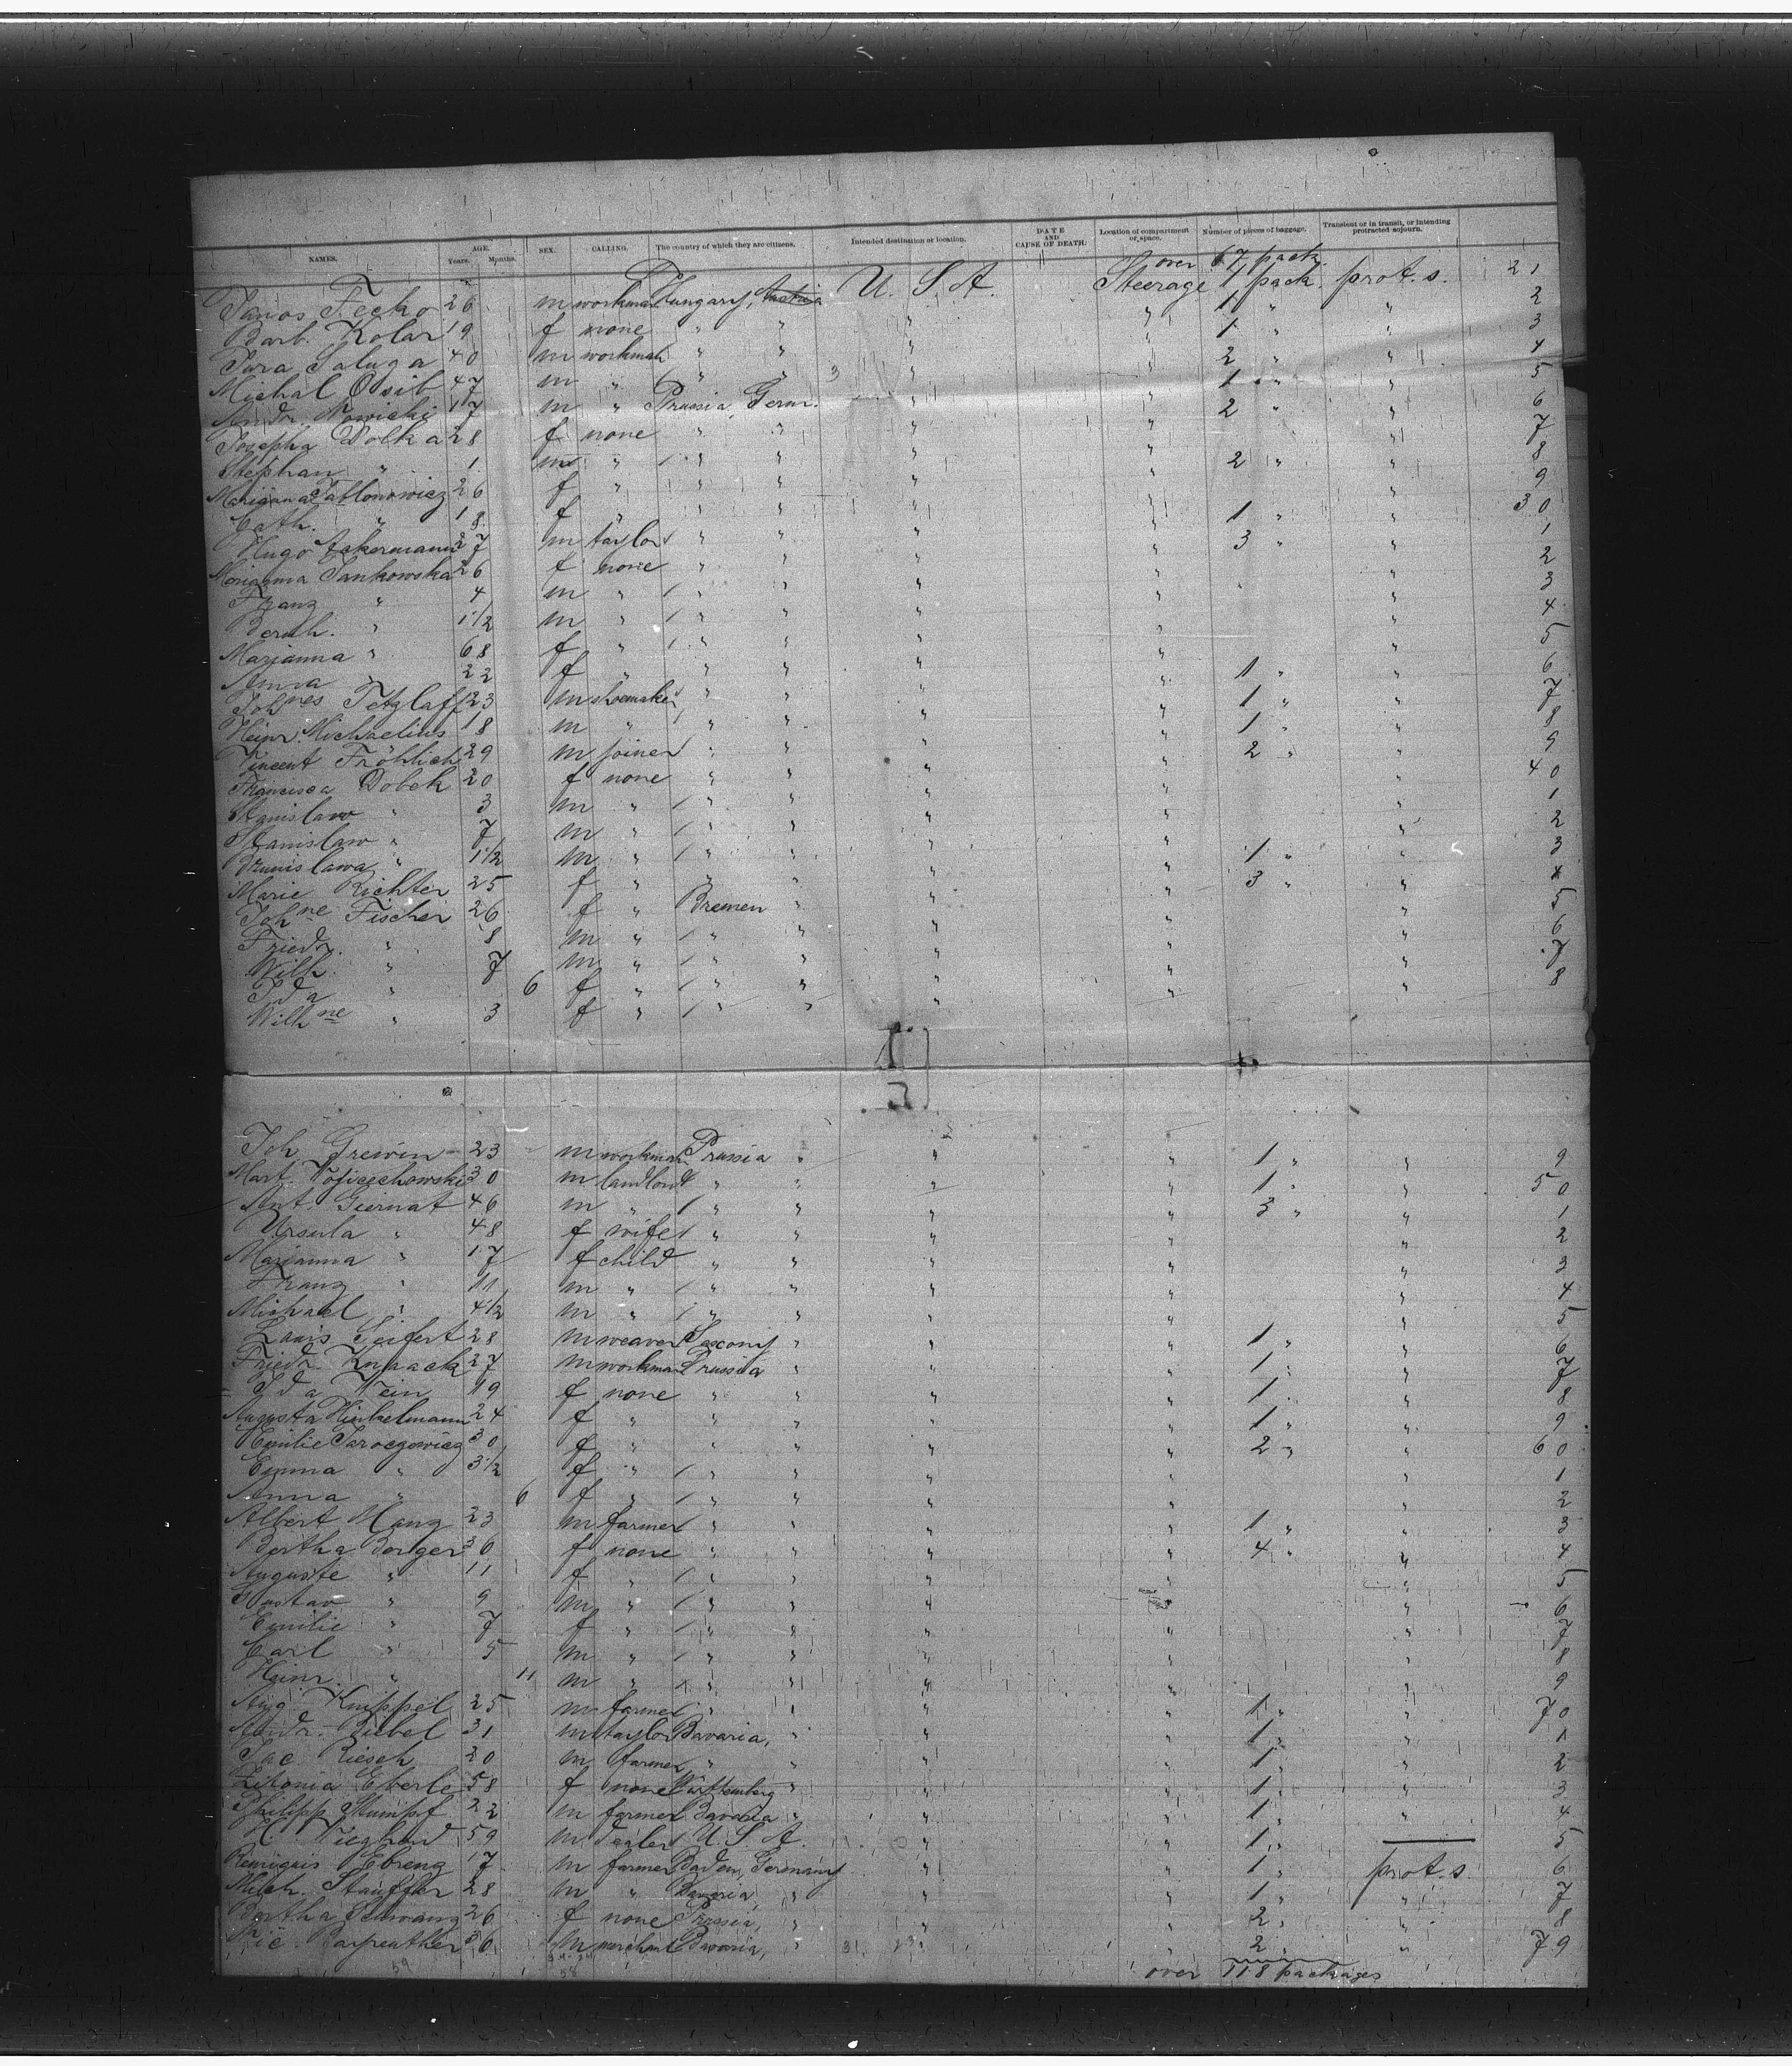 NAMES. AGE. Years. Months. SEX. CALLING. The country of which they are citizens. Intended destination or location. DATE AND CAUSE OF DEATH. Location of compartment or space. Number of pieces of baggage. Transient or in transit, or intending protracted sojourn.
over 67 pack.
Janos Fecko 26 m workman Hungary, Austria U. S. A. Steerage 1 pack. prot. s. 21
Barb. Kolar 19 f none " " " " 1 " " 2
Jura Saluga 40 m workman " " " " 1 " " 3
Michal Osib 47 m " " " " " 2 " " 4
Andr. Nowicki 17 m " Prussia, Germ. " " 1 " " 5
Josepha Dolka 28 f none " " " " 2 " " 6
Stephan " 1 m " " " " " " 7
Marianna Jablonowicz 26 f " " " " " 2 " " 8
Cath. " 18 f " " " " " " 9
Hugo Ackermann 27 m taylor " " " " 1 " " 30
Marianna Jankowska 26 f none " " " " 3 " " 1
Franz " 4 m " " " " " " 2
Bernh. " 1 1/2 m " " " " " " 3
Marianna " 68 f " " " " " " 4
Anna 22 f " " " " " " 5
Johnes Tetzlaff 23 m shoemaker " " " " 1 " " 6
Heinr. Michaelius 18 m " " " " " 1 " " 7
Vincent Fröhlich 29 m joiner " " " " 1 " " 8
Francisca Dobek 20 f none " " " " 2 " " 9
Stanislaw " 3 m " " " " " " 40
Stanislaw " 7 m " " " " " " 1
Brunislawa " 1 1/2 m " " " " " " 2
Marie Richter 25 f " " " " " 1 " " 3
Johne Fischer 26 f " Bremen " " " 3 " " 4
Friedr. " 8 m " " " " " " 5
Wilh. " 7 m " " " " " " 6
Ida " 6 f " " " " " " 7
Wilhne " 3 f " " " " " " 8
Joh Grewin 23 m workman Prussia " " " 1 " " 9
Mart. Wojciechowski 30 m landlord " " " " 1 " " 50
Ant. Giernat 46 m " " " " " 3 " " 1
Ursula " 48 f wife " " " " " 2
Marianna " 17 f child " " " " " 3
Franz " 11 m " " " " " " 4
Michael " 4 1/2 m " " " " " " 5
Louis Seifert 28 m weaver Saxony " " " 1 " " 6
Friedr. Knaack 27 m workman Prussia " " " 1 " " 7
Ida Wein 19 f none " " " " 1 " " 8
Augusta Hinkelmann 24 f " " " " " 1 " " 9
Emilie Jaroczewicz 30 f " " " " " 2 " " 60
Emma " 3 1/2 f " " " " " " 1
Anna " 6 f " " " " " " 2
Albert Manz 23 m farmer " " " " 1 " " 3
Bertha Borger 30 f none " " " " 4 " " 4
Auguste " 11 f " " " " " " 5
Gustav " 9 m " " " " " " 6
Emilie " 7 f " " " " " " 7
Carl " 5 m " " " " " " 8
Heinr. " 11 m " " " " " " 9
Aug. Knippel 25 m farmer " " " " 1 " " 70
Andr. Biebel 31 m taylor Bavaria, " " " 1 " " 1
Jac Riesch 20 m farmer " " " " 1 " " 2
Eberle 58 f none Württemberg " " " 1 " " 3
Philipp Stumpf 22 m farmer Bavaria " " " 1 " " 4
H. 59 m U. S. A. " " 1 " 5
17 m farmer Baden, Germany " " 1 " prot. s. 6
Mich. Stauffer 28 m " Bavaria, " " " 1 " " 7
Bertha Schwanz 26 f none Prussia, " " " 2 " " 8
Nic. Barpenther 30 m merchant Bavaria, " " " 2 " " 79
over 118 packages